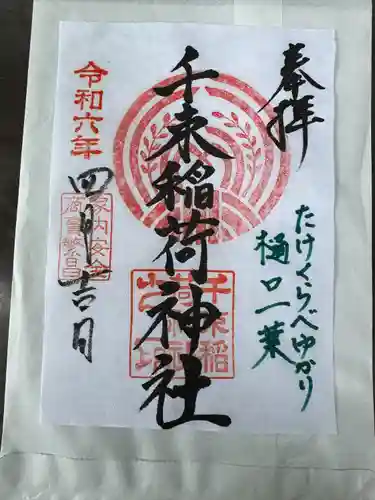 奉拝
たけくらべゆかり
樋口一葉
千束稲荷神社
千束稲
荷神社
令和六年
四月吉日
家内安全
商売繁昌